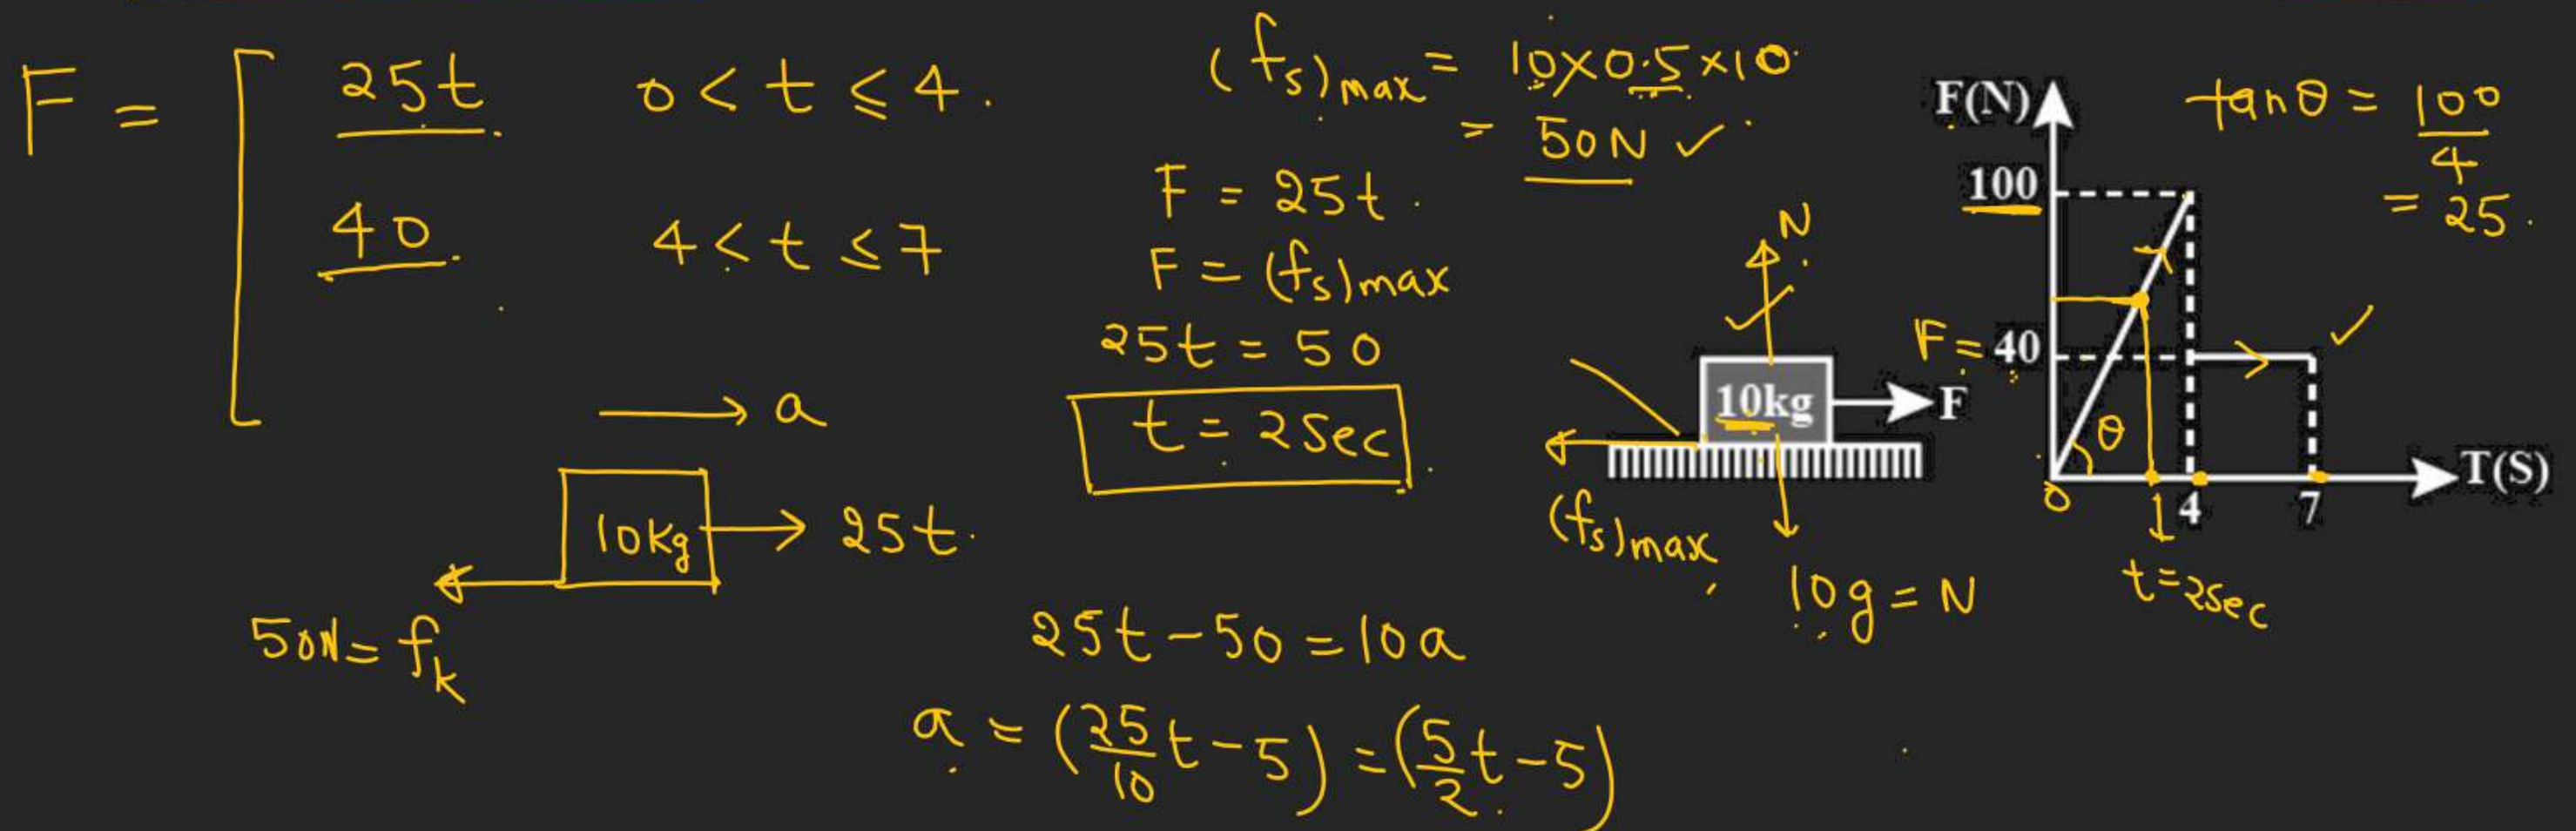 F = [ 25t 0 < t ≤ 4.
40. 4 < t ≤ 7
→ a
10kg → 25t.
50N = fk
(fs)max = 10×0.5×10
= 50N ✓
F = 25t.
F = (fs)max
25t = 50
t = 2sec
25t - 50 = 10a
a = (25/10 t - 5) = (5/2 t - 5)
N
10kg
F
(fs)max
10g = N
F(N)
100
F = 40
θ
0
4
7
T(S)
t=2sec
tanθ = 100/4
= 25.